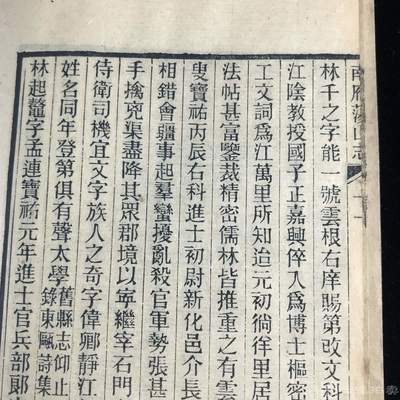 南雁蕩山志
林千之字能一號雲根右庠賜第改文科
江陰教授國子正嘉興倅入爲博士樞密
工文詞爲江萬里所知迨元初徜徉里居
法帖甚富鑒裁精密儒林皆推重之有雲
叟寶祐丙辰右科進士初尉新化邑介長
相錯會疆事起羣蠻擾亂殺官軍勢張甚
手擒兇渠盡降其眾郡境以寧繼宰石門
侍衛司機宜文字族人之奇字偉卿靜江
姓名同年登第俱有聲太學舊縣志仰止
錄東甌詩集
林起鼇字孟連寶祐元年進士官兵部郎